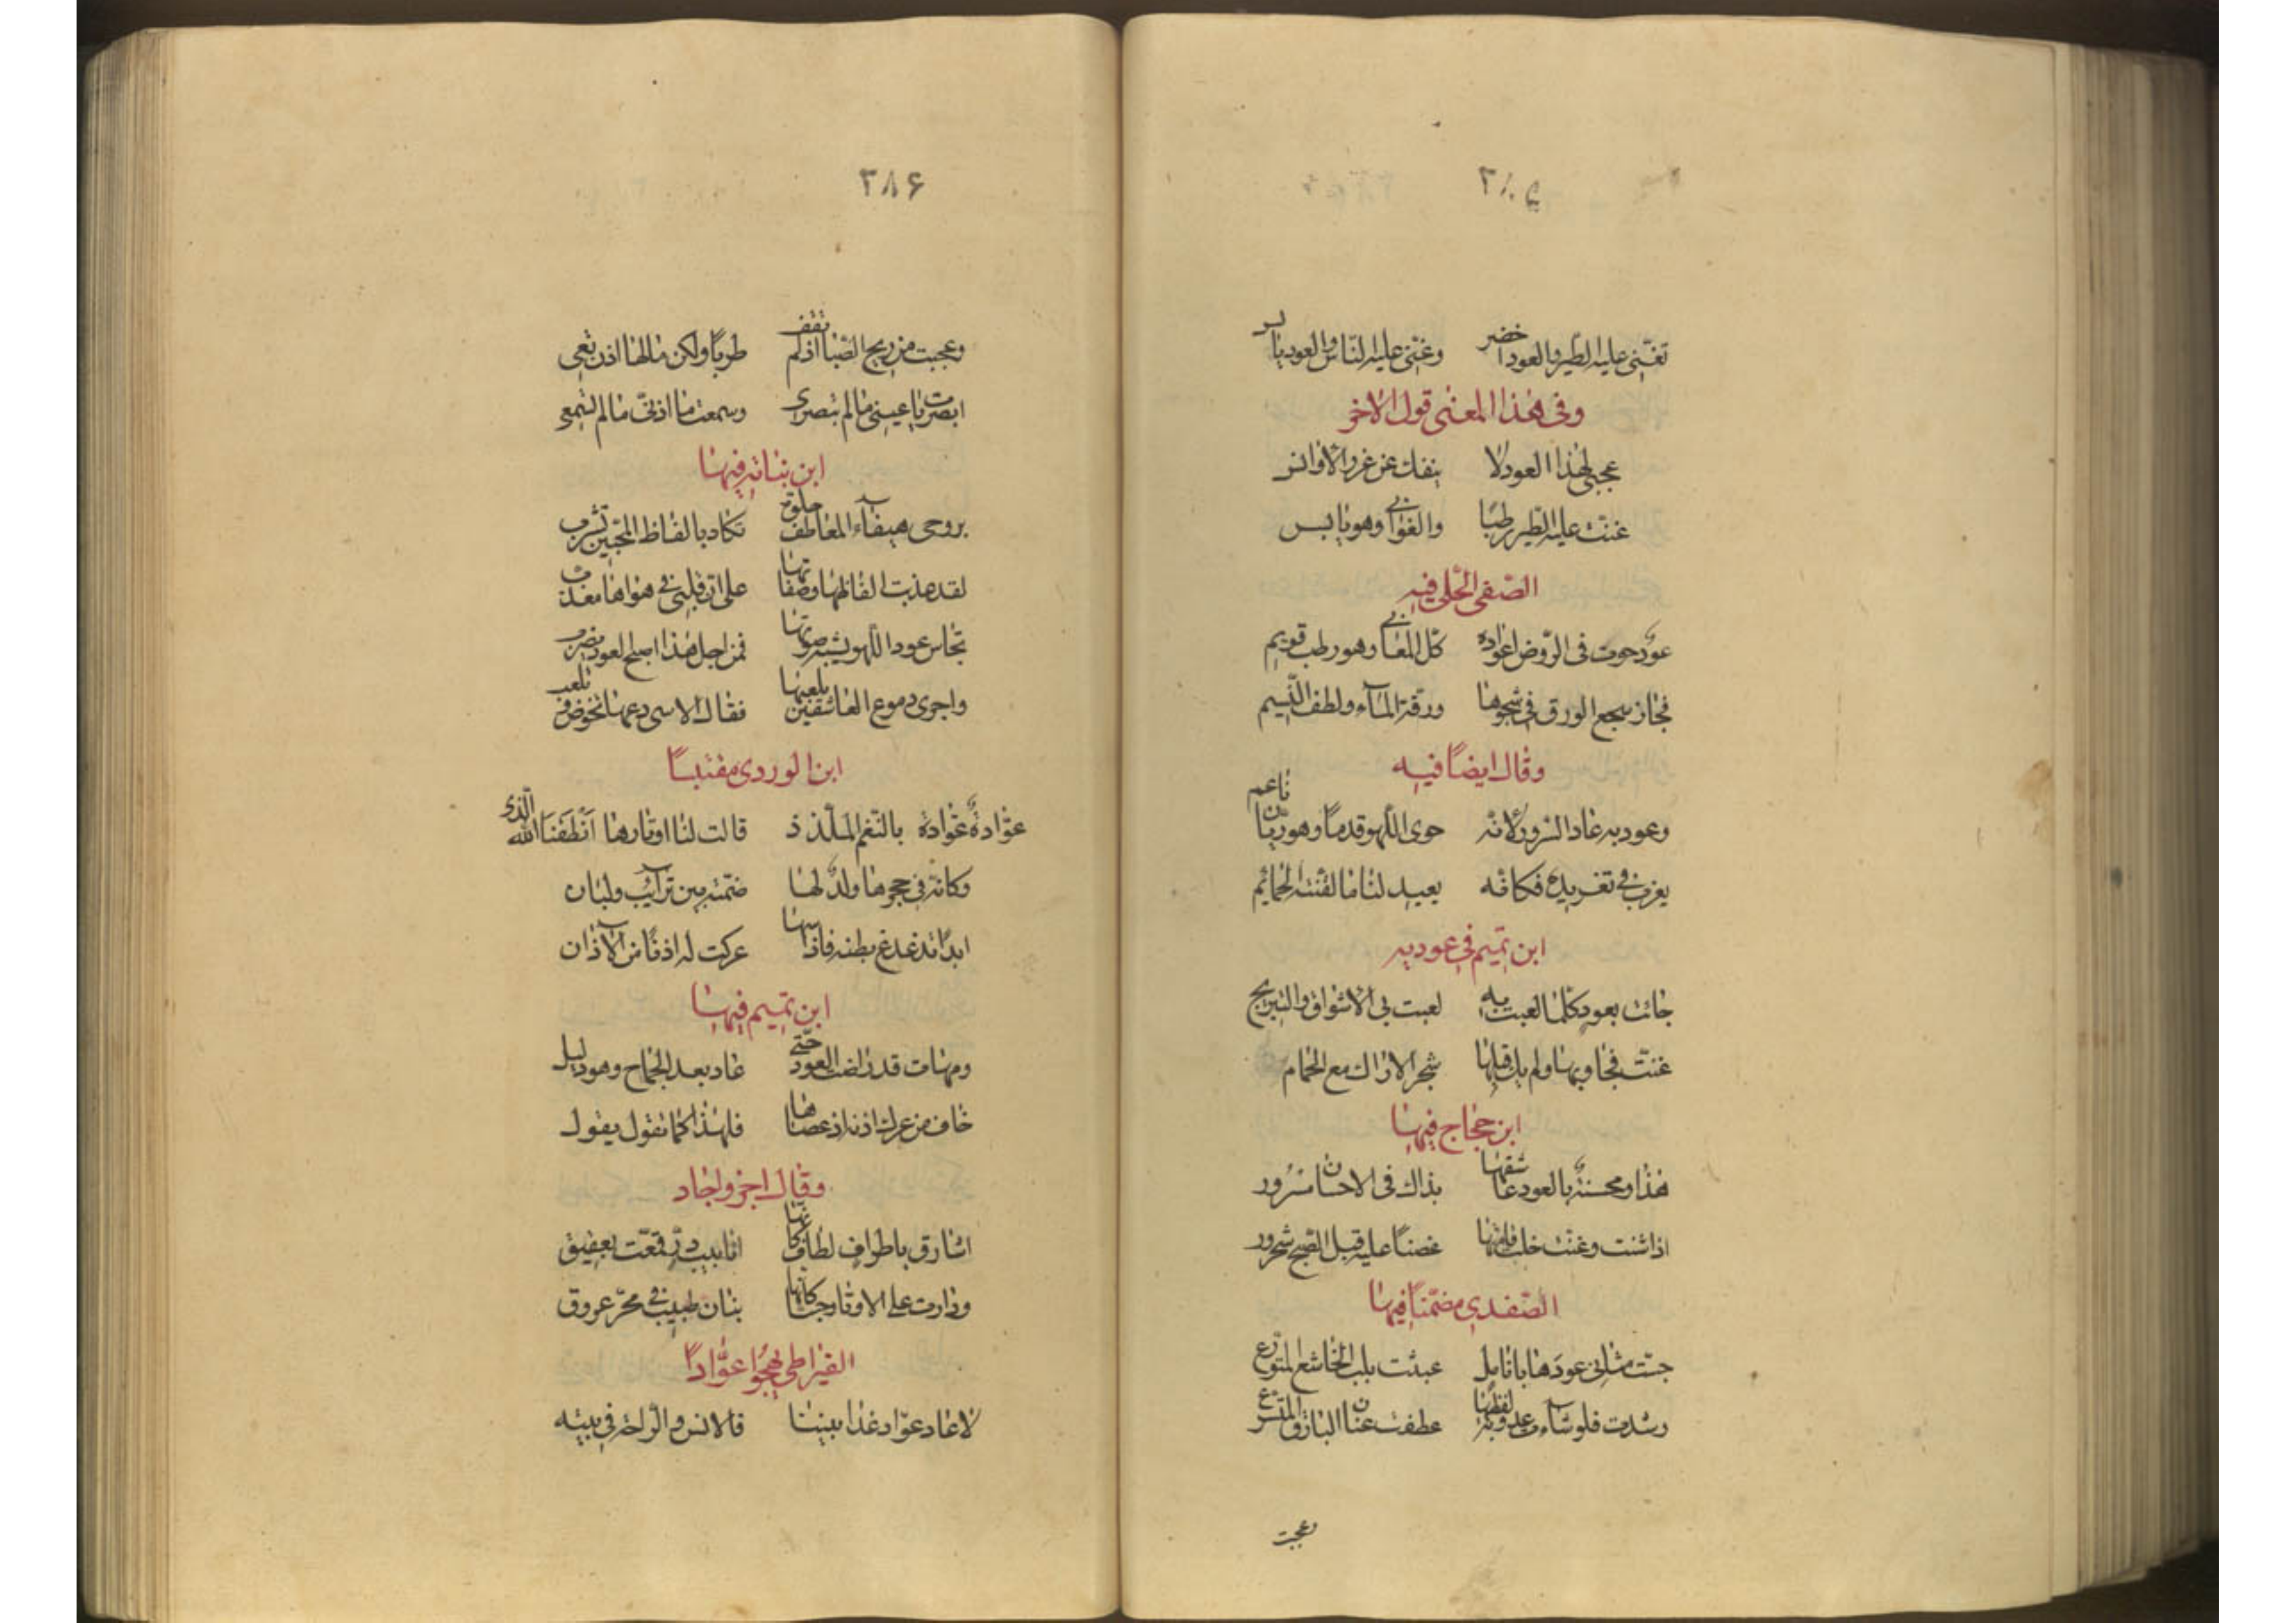 ٢٨٥
تغنّى عليه الطّير والعود اخضر وغنّى عليه النّاس والعود يابس
وفى هذا المعنى قول الاخر
عجبى لهذا العود لا ينفك عن غرر الاوانس
غنّت عليه الطّير رطبًا والغوانى وهو يابس
الصّفى الحلّى فيه
عودٌ حوت فى الرّوض اعواده كلّ المعانى وهو رطب قويم
فحاز سجع الورق فى شجوها ورقّة المآء ولطف النّسيم
وقال ايضًا فيه
وعود به عاد السّرور لانّه حوى اللّهو قدمًا وهو ريّان ناعم
يغرب فى تغريده فكانّه يعيد لنا ما لقّنته الحمايم
ابن تميم فى عوديه
جائت بعودٍ كلّما لعبت به لعبت بى الاشواق والتبريح
غنّت فجاوبها ولم يك قبلها شجر الاراك مع الحمام
ابن حجاج فيها
هذا ومحسنةٌ بالعود عاشقها بذاك فى الاحسان مسرور
اذا شنت وغنّت خلت قامتها غصنًا عليه قبل الصّبح شحرور
الصّفدى مضمّنًا فيها
جسّت مثانى عودها بانامل عبثت بلب الخاشع المتورّع
وشدت فلو شآءت عذوبة لفظها عطفت عنان البارق المتسرّع
وعجبت
٢٨۶
وعجبت من ريح الصّبا اذ لم تقف طربًا ولكن ما لها اذن تعى
ابصرت يا عينى ما لم تبصرى وسمعت ما اذنى ما لم تسمعى
ابن نباته فيها
بروحى هيفآء المعاطف حلوة تكاد بالفاظ المحبّين تشرب
لقد عذبت الفاظها وصفاتها على انّ قلبى فى هواها معذب
تجاس عود اللّهو يشبه صوتها فمن اجل هذا اصبح العود يضرب
واجرى دموع العاشقين بلعبها فقال الاسى دعها تخوض وتلعب
ابن الوردى مقتبسًا
عوّادةٌ عوّادة بالنّغم الملذّذ قالت لنا اوتارها انطقنا الله الّذى
وكانّه فى حجرها ولدٌ لها ضمّته بين ترآئب ولبان
ابدًا تدغدغ بطنه فاذا سها عركت له اذنًا من الآذان
ابن تميم فيها
ومهات قد راضت العود حتّى عاد بعد الجماح وهو ذليل
خاف من عرك اذنه اذ عصاها فلهذا كما تقول يقول
وقال اخر واجاد
اشارق باطرافٍ لطاف كانّها انابيب درّ قمّعت بعقيق
ودارت على الاوتار جسًّا كانّها بنان طبيب فى مجرّ عروق
القيراطى يهجوا عوّادًا
لا عاد عوّاد غدا بيننا فالانس والرّاحة فى بيته